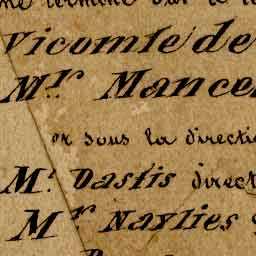 Vicomte de
Mr. Mance
ou sous la directi
M. Dastis direct
Mr Naylies